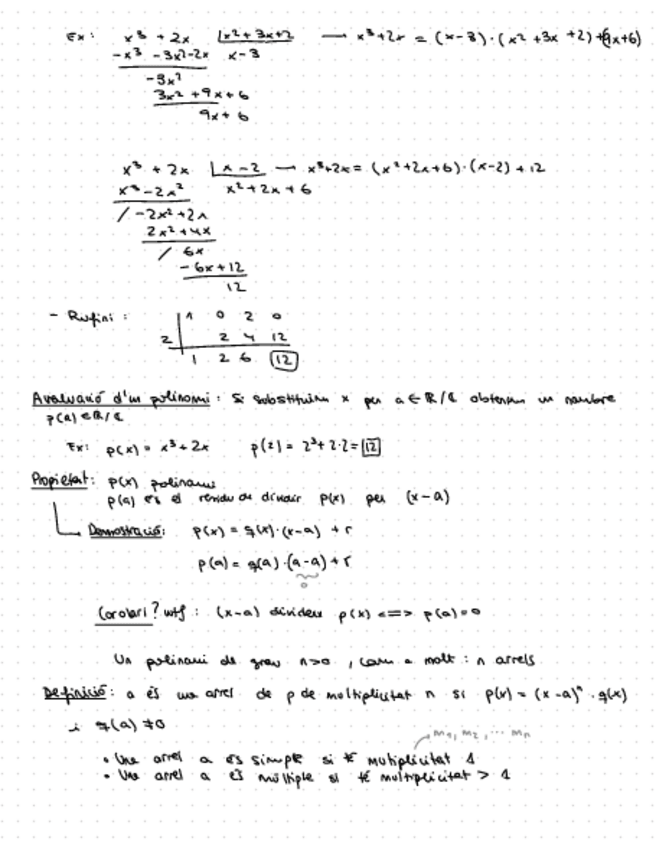 Ex: x³ + 2x | x²+3x+2 → x³+2x = (x-3)·(x²+3x+2)+(9x+6)
-x³ -3x²-2x x-3
-3x²
3x²+9x+6
9x+6
x³ + 2x | x-2 → x³+2x = (x²+2x+6)·(x-2)+12
x³-2x² x²+2x+6
/ -2x²+2x
2x²+4x
/ 6x
-6x+12
12
- Rufini: 1 0 2 0
2 2 4 12
1 2 6 12
Avaluació d'un polinomi: Si substituim x per a∈ℝ/ℂ obtenim un nombre
p(a)∈ℝ/ℂ
Ex: p(x) = x³+2x p(2) = 2³+2·2 = 12
Propietat: p(x) polinomi
p(a) és el residu de dividir p(x) per (x-a)
Demostració: p(x) = q(x)·(x-a)+r
p(a) = q(a)·(a-a)+r
0
Corolari? wtf: (x-a) divideix p(x) <=> p(a)=0
Un polinomi de grau n>0, com a molt: n arrels
Definició: a és una arrel de p de multiplicitat n si p(x) = (x-a)ⁿ·q(x)
i q(a) ≠0
m₁, m₂, ... mₙ
• Una arrel a és simple si té mutiplicitat 1
• Una arrel a és múltiple si té multiplicitat > 1